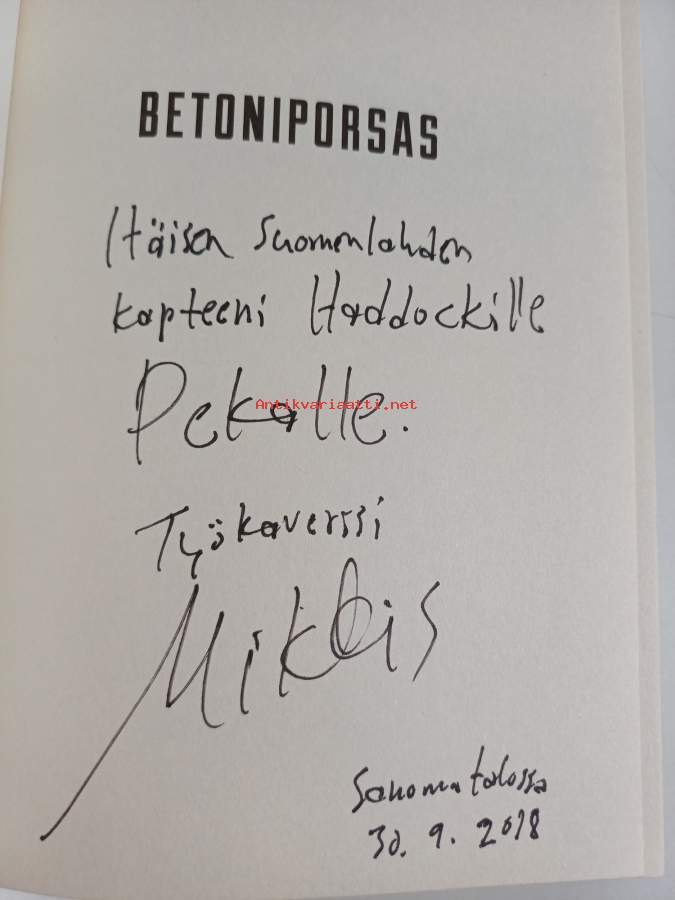 BETONIPORSAS
Itäisen Suomenlahden
kapteeni Haddockille
Pekalle.
Antikvariaatti.net
Työkaverisi
Miklois
Sanomatalossa
30. 9. 2018